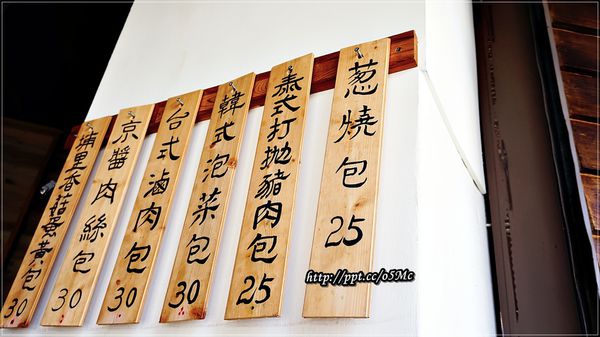 蔥燒包 25
泰式打拋豬肉包 25
韓式泡菜包 30
台式滷肉包 30
京醬肉絲包 30
埔里香菇蛋黃包 30
http://ppt.cc/o5Mc